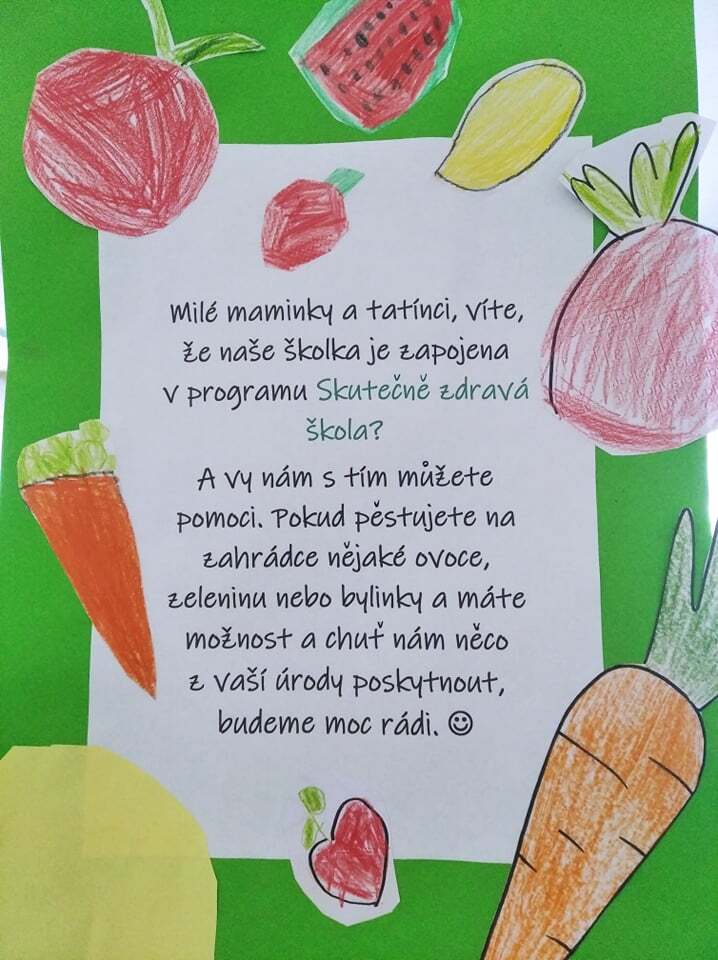 Milé maminky a tatínci, víte,
že naše školka je zapojena
v programu Skutečně zdravá
škola?
A vy nám s tím můžete
pomoci. Pokud pěstujete na
zahrádce nějaké ovoce,
zeleninu nebo bylinky a máte
možnost a chuť nám něco
z vaší úrody poskytnout,
budeme moc rádi. ☺